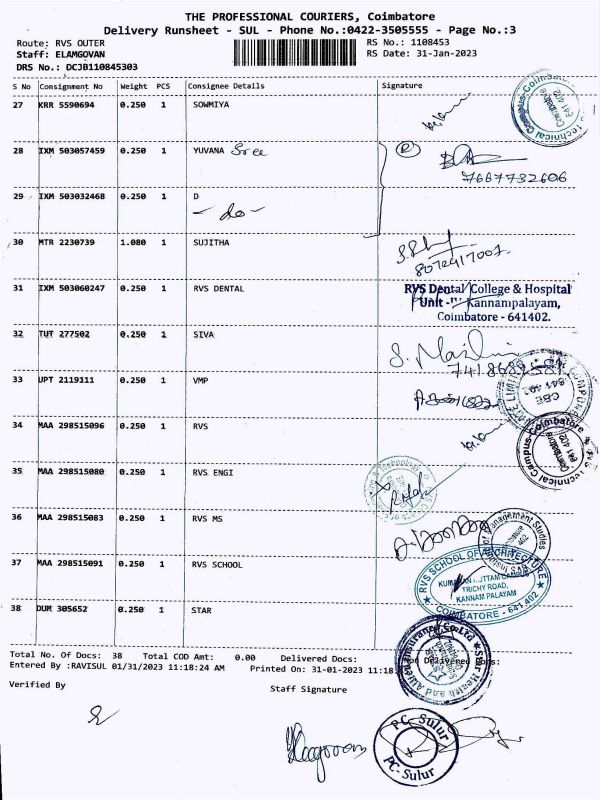 THE PROFESSIONAL COURIERS, Coimbatore
Delivery Runsheet - SUL - Phone No.:0422-3505555 - Page No.:3
Route: RVS OUTER RS No.: 1108453
Staff: ELAMGOVAN RS Date: 31-Jan-2023
DRS No.: DCJB110845303
S No Consignment No Weight PCS Consignee Details Signature
27 KRR 5590694 0.250 1 SOWMIYA
28 IXM 503057459 0.250 1 YUVANA Sree
7667732606
29 IXM 503032468 0.250 1 D
- do -
30 MTR 2230739 1.080 1 SUJITHA
8072417007
31 IXM 503060247 0.250 1 RVS DENTAL
RVS Dental College & Hospital
Kannampalayam,
Coimbatore - 641402.
32 TUT 277502 0.250 1 SIVA
33 UPT 2119111 0.250 1 VMP
34 MAA 298515096 0.250 1 RVS
35 MAA 298515080 0.250 1 RVS ENGI
36 MAA 298515083 0.250 1 RVS MS
37 MAA 298515091 0.250 1 RVS SCHOOL
RVS SCHOOL OF ARCHITECTURE
TRICHY ROAD,
KANNAM PALAYAM
COIMBATORE - 641 402
38 DUM 305652 0.250 1 STAR
Total No. Of Docs: 38 Total COD Amt: 0.00 Delivered Docs: Non Delivered Docs:
Entered By :RAVISUL 01/31/2023 11:18:24 AM Printed On: 31-01-2023 11:18
Verified By Staff Signature
PC-Sulur
PC-Sulur